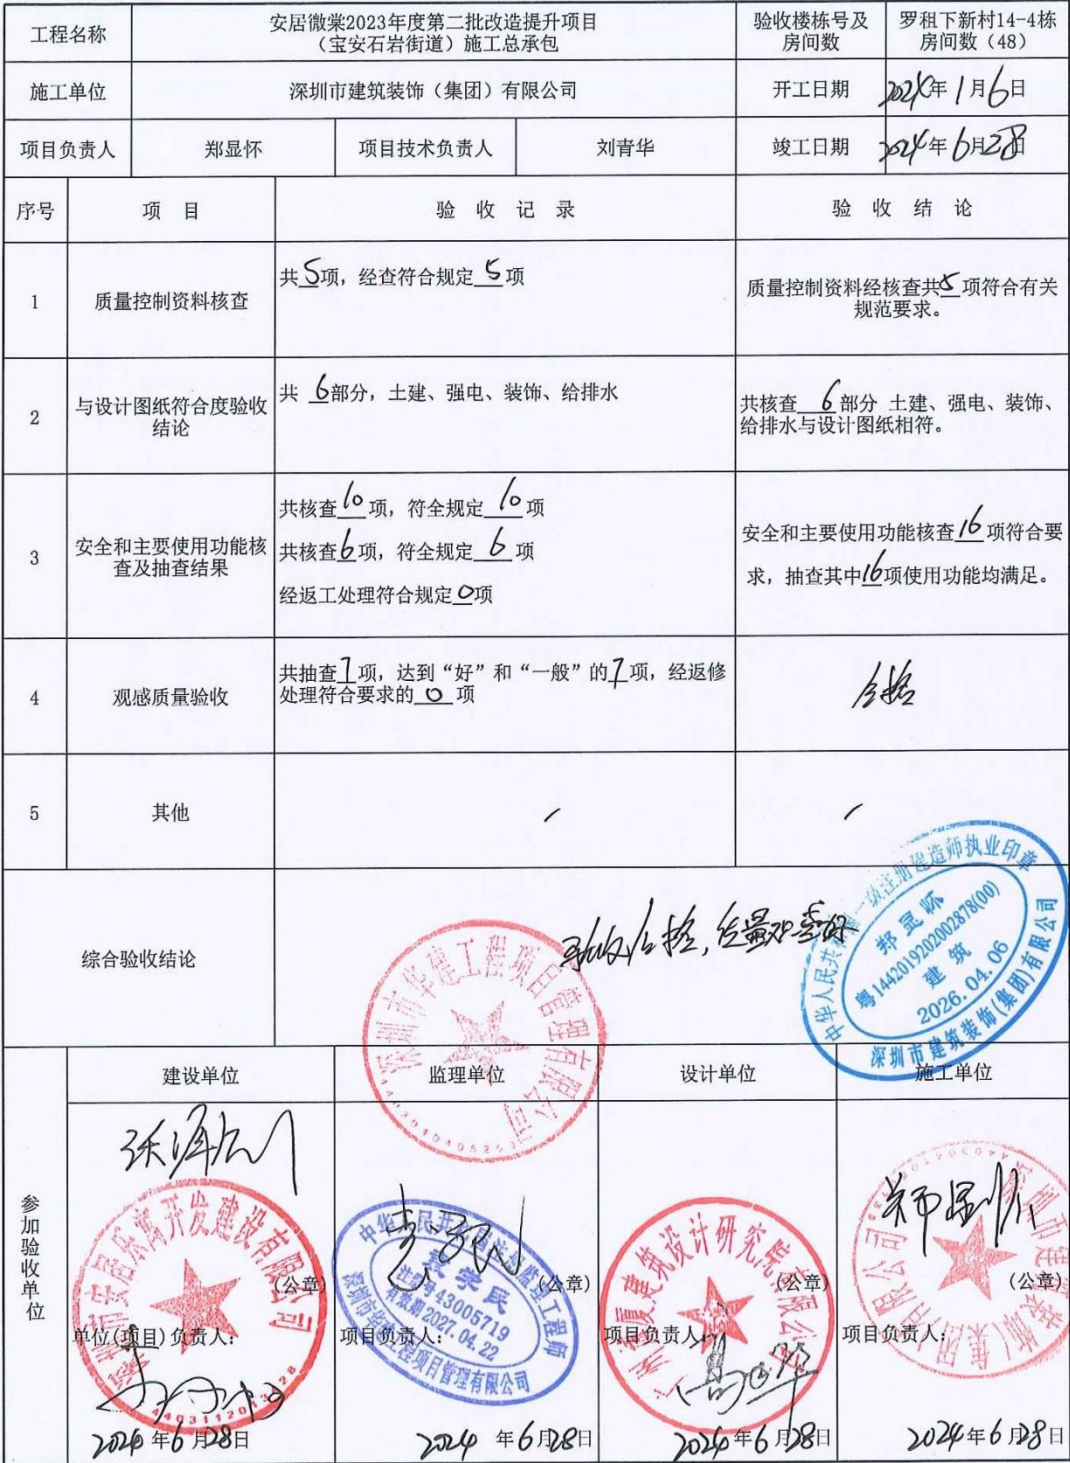 工程名称
安居微棠2023年度第二批改造提升项目
（宝安石岩街道）施工总承包
验收楼栋号及
房间数
罗租下新村14-4栋
房间数（48）
施工单位
深圳市建筑装饰（集团）有限公司
开工日期
2024年1月6日
项目负责人
郑显怀
项目技术负责人
刘青华
竣工日期
2024年6月28日
序号
项 目
验 收 记 录
验 收 结 论
1
质量控制资料核查
共5项，经查符合规定 5 项
质量控制资料经核查共5项符合有关
规范要求。
2
与设计图纸符合度验收
结论
共 6部分，土建、强电、装饰、给排水
共核查 6 部分 土建、强电、装饰、
给排水与设计图纸相符。
3
安全和主要使用功能核
查及抽查结果
共核查10项，符全规定 10 项
共核查6项，符全规定 6 项
经返工处理符合规定0项
安全和主要使用功能核查16项符合要
求，抽查其中16项使用功能均满足。
4
观感质量验收
共抽查7项，达到“好”和“一般”的7项，经返修
处理符合要求的 0 项
合格
5
其他
综合验收结论
验收合格，
中华人民共和国一级注册建造师执业印章
郑显怀
粤1442019202002878(00)
建筑
2026.04.06
深圳市建筑装饰(集团)有限公司
深圳市华建工程项目管理有限公司
参加验收单位
建设单位
监理单位
设计单位
施工单位
郑显怀
深圳市安居乐寓开发建设有限公司
中华人民共和国注册监理工程师
袁学民
注册号43005719
有效期2027.04.22
深圳市华建工程项目管理有限公司
(公章)
(公章)
(公章)
(公章)
单位(项目)负责人：
项目负责人：
项目负责人：
项目负责人：
2024 年6月28日
2024 年6月28日
2024年6月28日
2024年6月28日